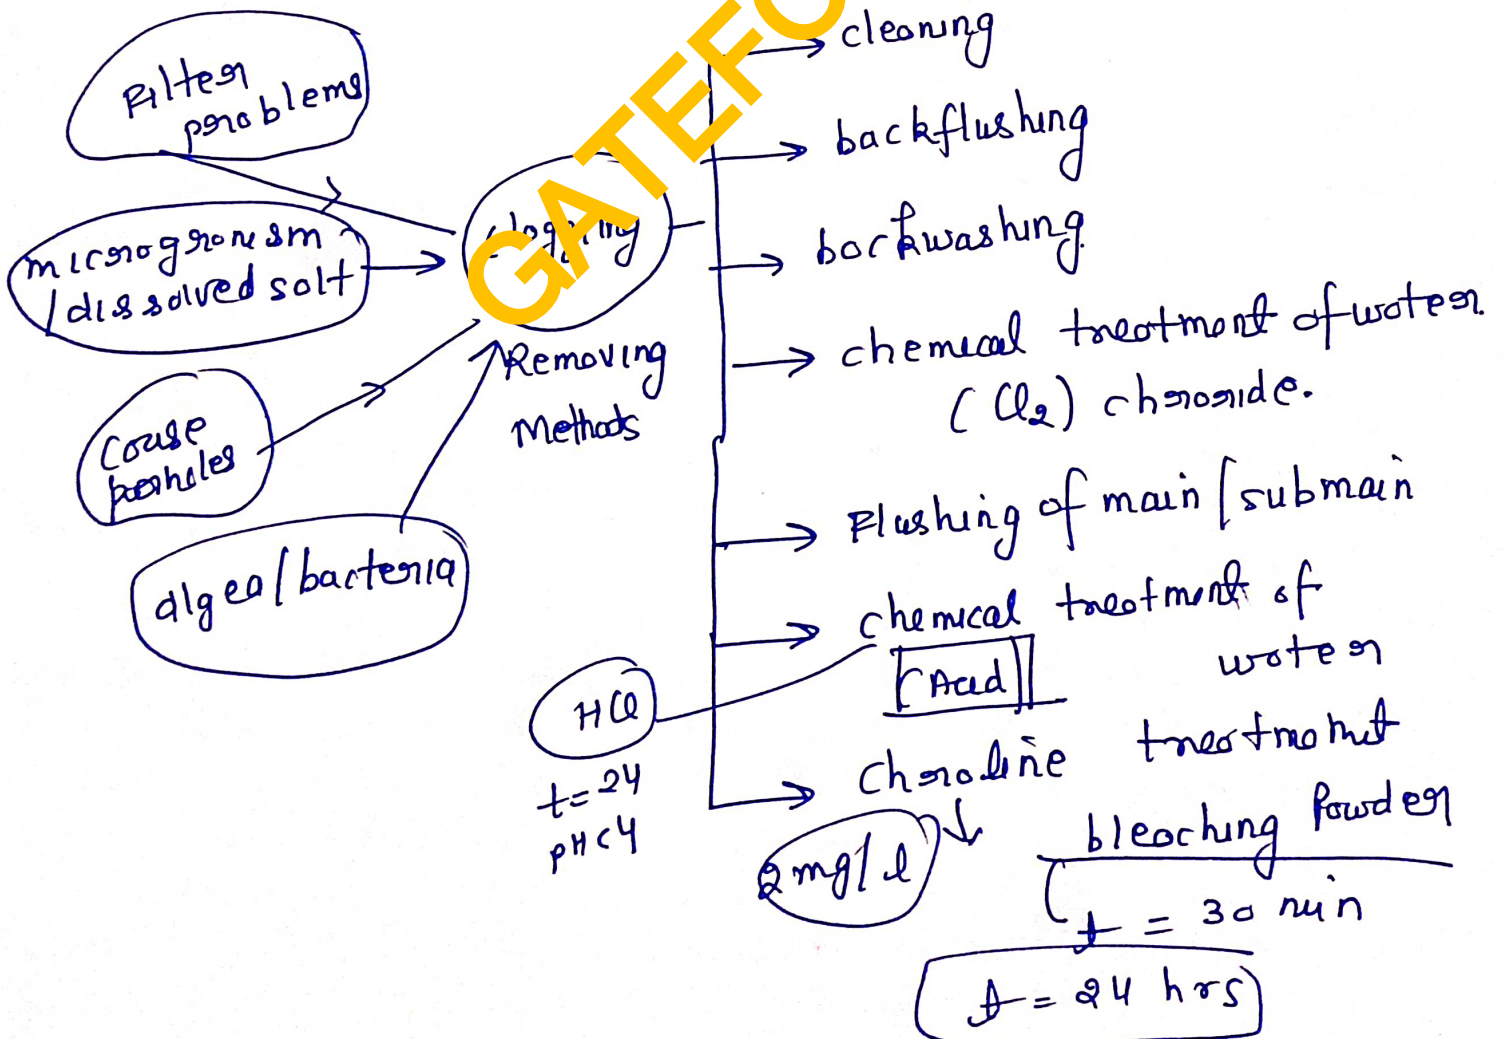 Filter
problems
microgronism
/dissolved salt
couse
porholes
algea/bacteria
clogging
Removing
Methods
GATEFO
cleaning
backflushing
backwashing
chemical treatment of water
(Cl2) chroride.
Flushing of main/submain
chemical treatment of
water
[Acid]
HCl
t=24
pH<4
Chroline treatmemt
2mg/l
bleaching Powder
t = 30 min
t = 24 hrs